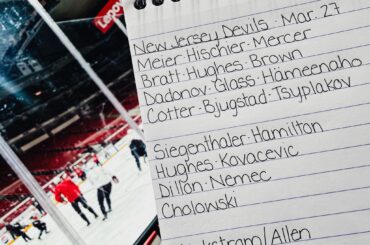 New Jersey Devils · Mar. 27
Meier · Hischier · Mercer
Bratt · Hughes · Brown
Dadonov · Glass · Hämeenaho
Cotter · Bjugstad · Tsyplakov
Siegenthaler · Hamilton
Hughes · Kovacevic
Dillon · Nemec
Cholowski
/Allen